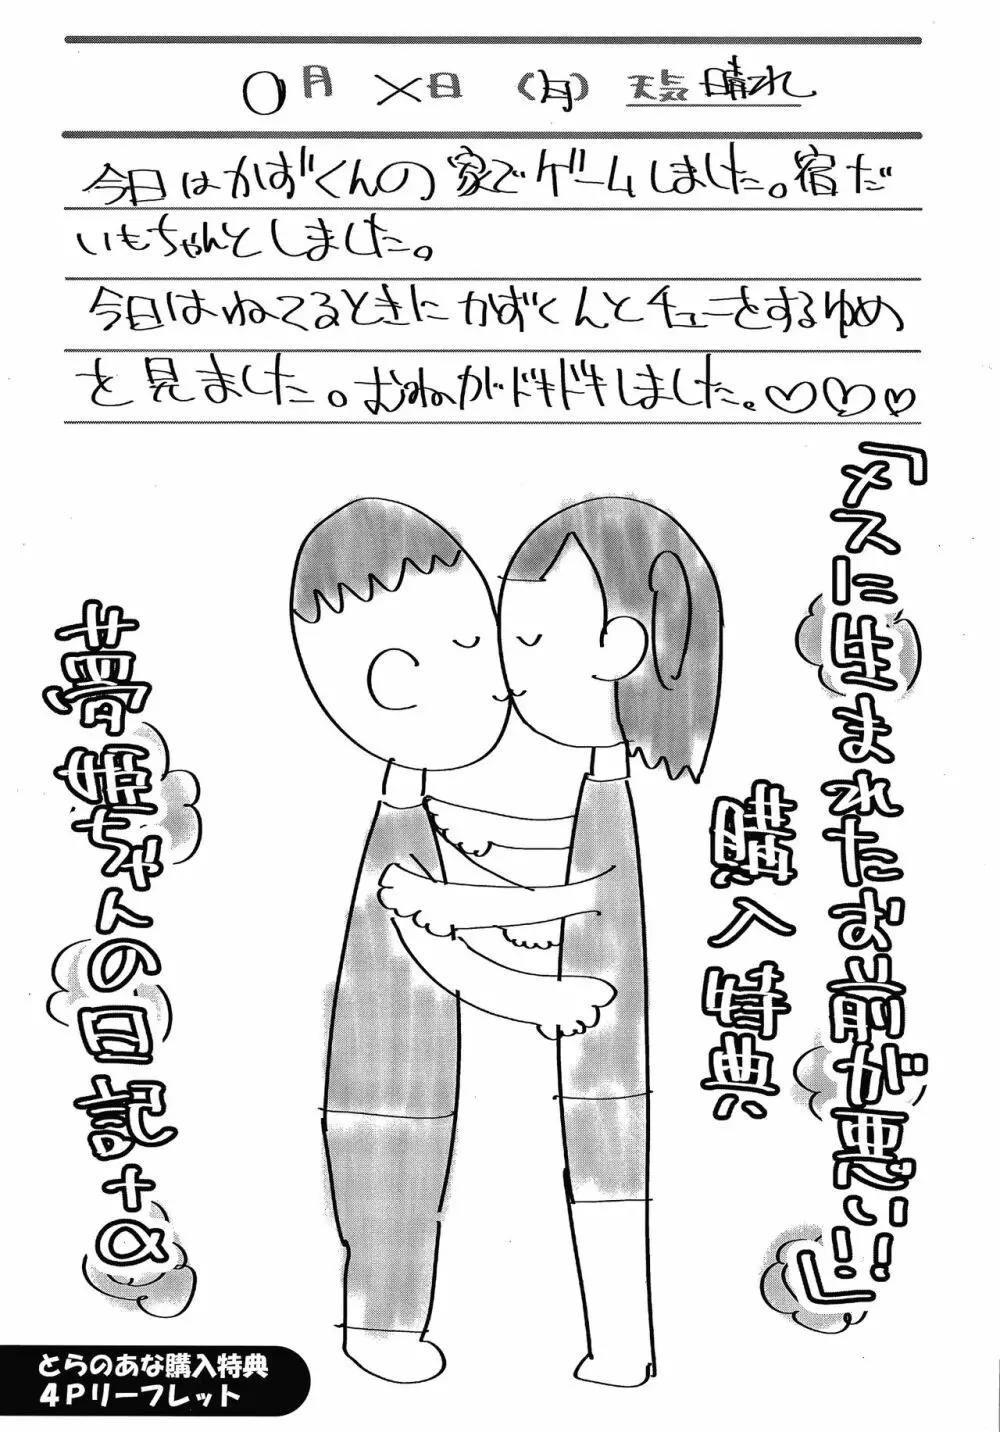 〇月 ×日 (月) 天気 晴れ
今日はかずくんの家でゲームしました。宿だ
いもちゃんとしました。
今日はねてるときにかずくんとチューをするゆめ
を見ました。むねがドキドキしました。♡♡♡
『メスに生まれたお前が悪い!!』
購入特典
夢姫ちゃんの日記+α
とらのあな購入特典
4Pリーフレット